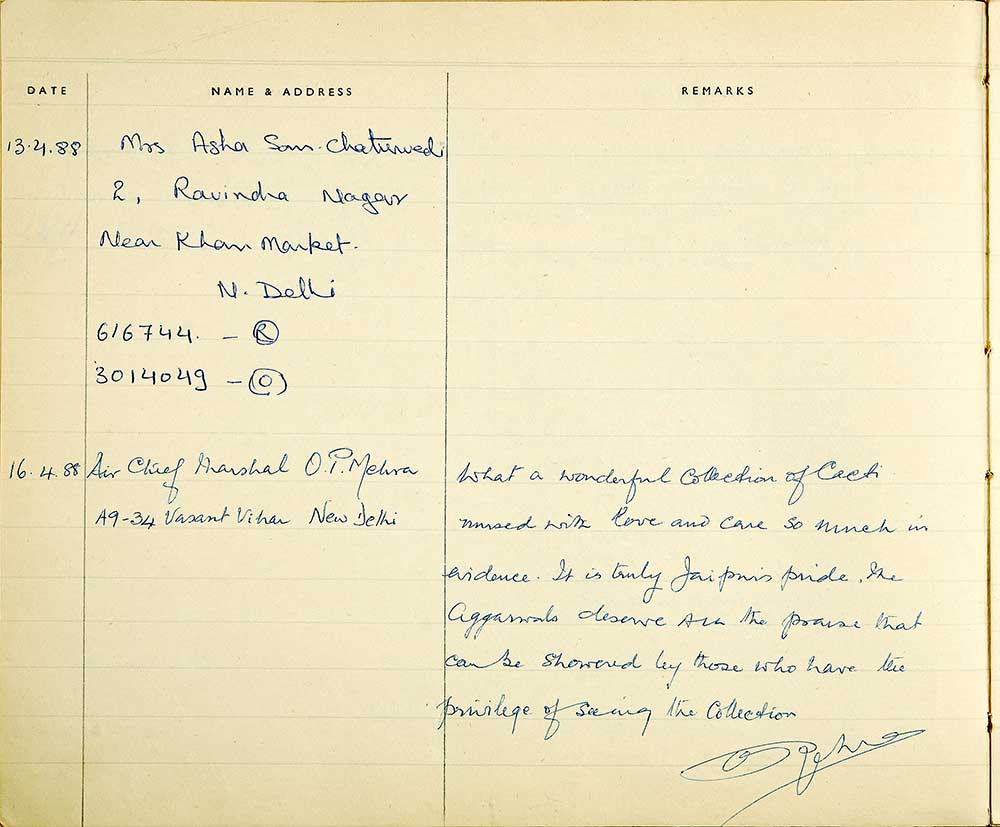 DATE NAME & ADDRESS REMARKS
13.4.88 Mrs Asha Som. Chaturvedi
2, Ravindra Nagar
Near Khan Market.
N. Delhi
616744. - R
3014049 - O
16.4.88 Air Chief Marshal O.P. Mehra
A9-34 Vasant Vihar New Delhi
What a wonderful collection of Cacti
nursed with love and care so much in
evidence. It is truly Jaipur's pride. The
Aggarwals deserve all the praise that
can be showered by those who have the
privilege of seeing the Collection